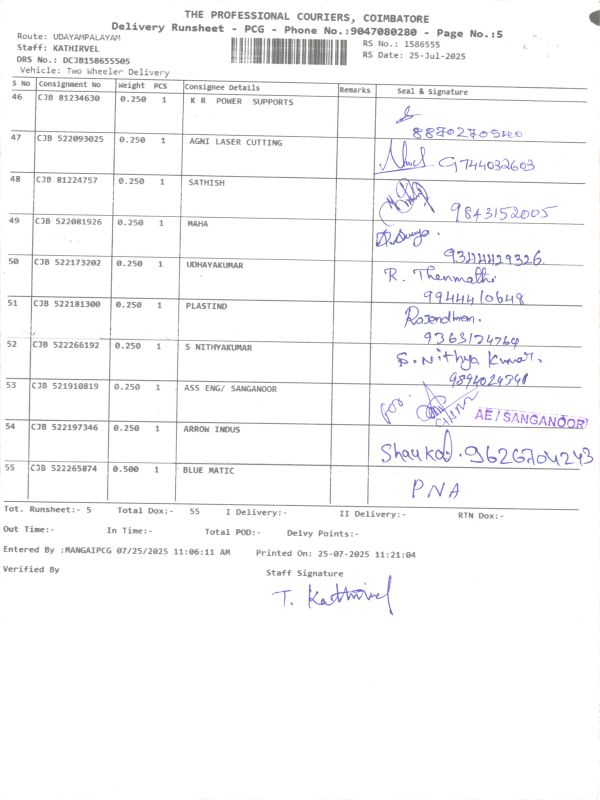 THE PROFESSIONAL COURIERS, COIMBATORE
Delivery Runsheet - PCG - Phone No.:9047080280 - Page No.:5
Route: UDAYAMPALAYAM RS No.: 1586555
Staff: KATHIRVEL RS Date: 25-Jul-2025
DRS No.: DCJB158655505
Vehicle: Two Wheeler Delivery
S No Consignment No Weight PCS Consignee Details Remarks Seal & Signature
46 CJB 81234630 0.250 1 K R POWER SUPPORTS
8870270540
47 CJB 522093025 0.250 1 AGNI LASER CUTTING
9744032603
48 CJB 81224757 0.250 1 SATHISH
9843152005
49 CJB 522081926 0.250 1 MAHA D. Surya.
9344429326.
50 CJB 522173202 0.250 1 UDHAYAKUMAR R. Thenmathi
9944410648
51 CJB 522181300 0.250 1 PLASTIND Rajendhran.
9363124764
52 CJB 522266192 0.250 1 S NITHYAKUMAR S. Nithya Kumar.
9894024341
53 CJB 521910819 0.250 1 ASS ENG/ SANGANOOR for AE / SANGANOOR
54 CJB 522197346 0.250 1 ARROW INDUS Shaukad. 9626704243
55 CJB 522265874 0.500 1 BLUE MATIC PNA
Tot. Runsheet:- 5 Total Dox:- 55 I Delivery:- II Delivery:- RTN Dox:-
Out Time:- In Time:- Total POD:- Delvy Points:-
Entered By :MANGAIPCG 07/25/2025 11:06:11 AM Printed On: 25-07-2025 11:21:04
Verified By Staff Signature
T. Kathirvel